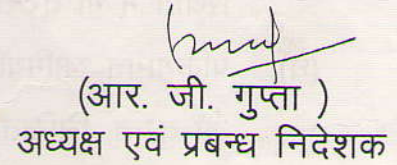 (आर. जी. गुप्ता )
अध्यक्ष एवं प्रबन्ध निदेशक